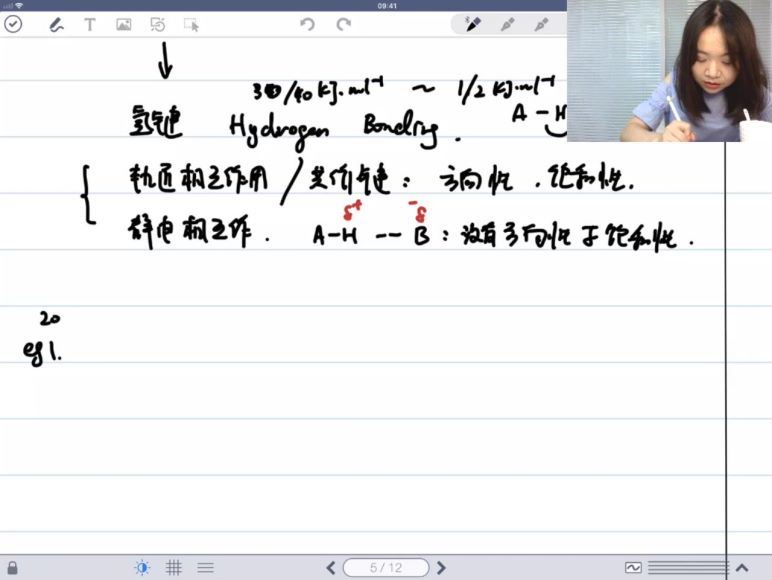 09:41
300/40 kJ·mol⁻¹ ~ 1/2 kJ·mol⁻¹
氢键 Hydrogen Bonding. A-H
轨道相互作用 / 共价键: 方向性, 饱和性.
δ+ -δ
静电相互作. A-H -- B: 没有方向性于饱和性.
20
eg 1.
5 / 12